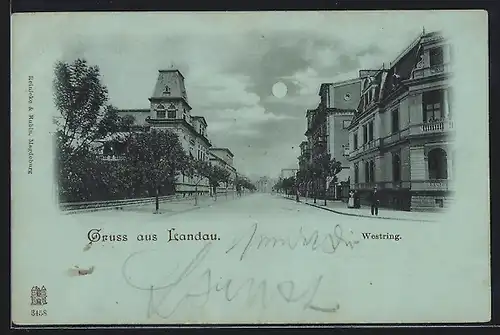 Reinicke & Rubin, Magdeburg
Gruss aus Landau.
Westring.
3458